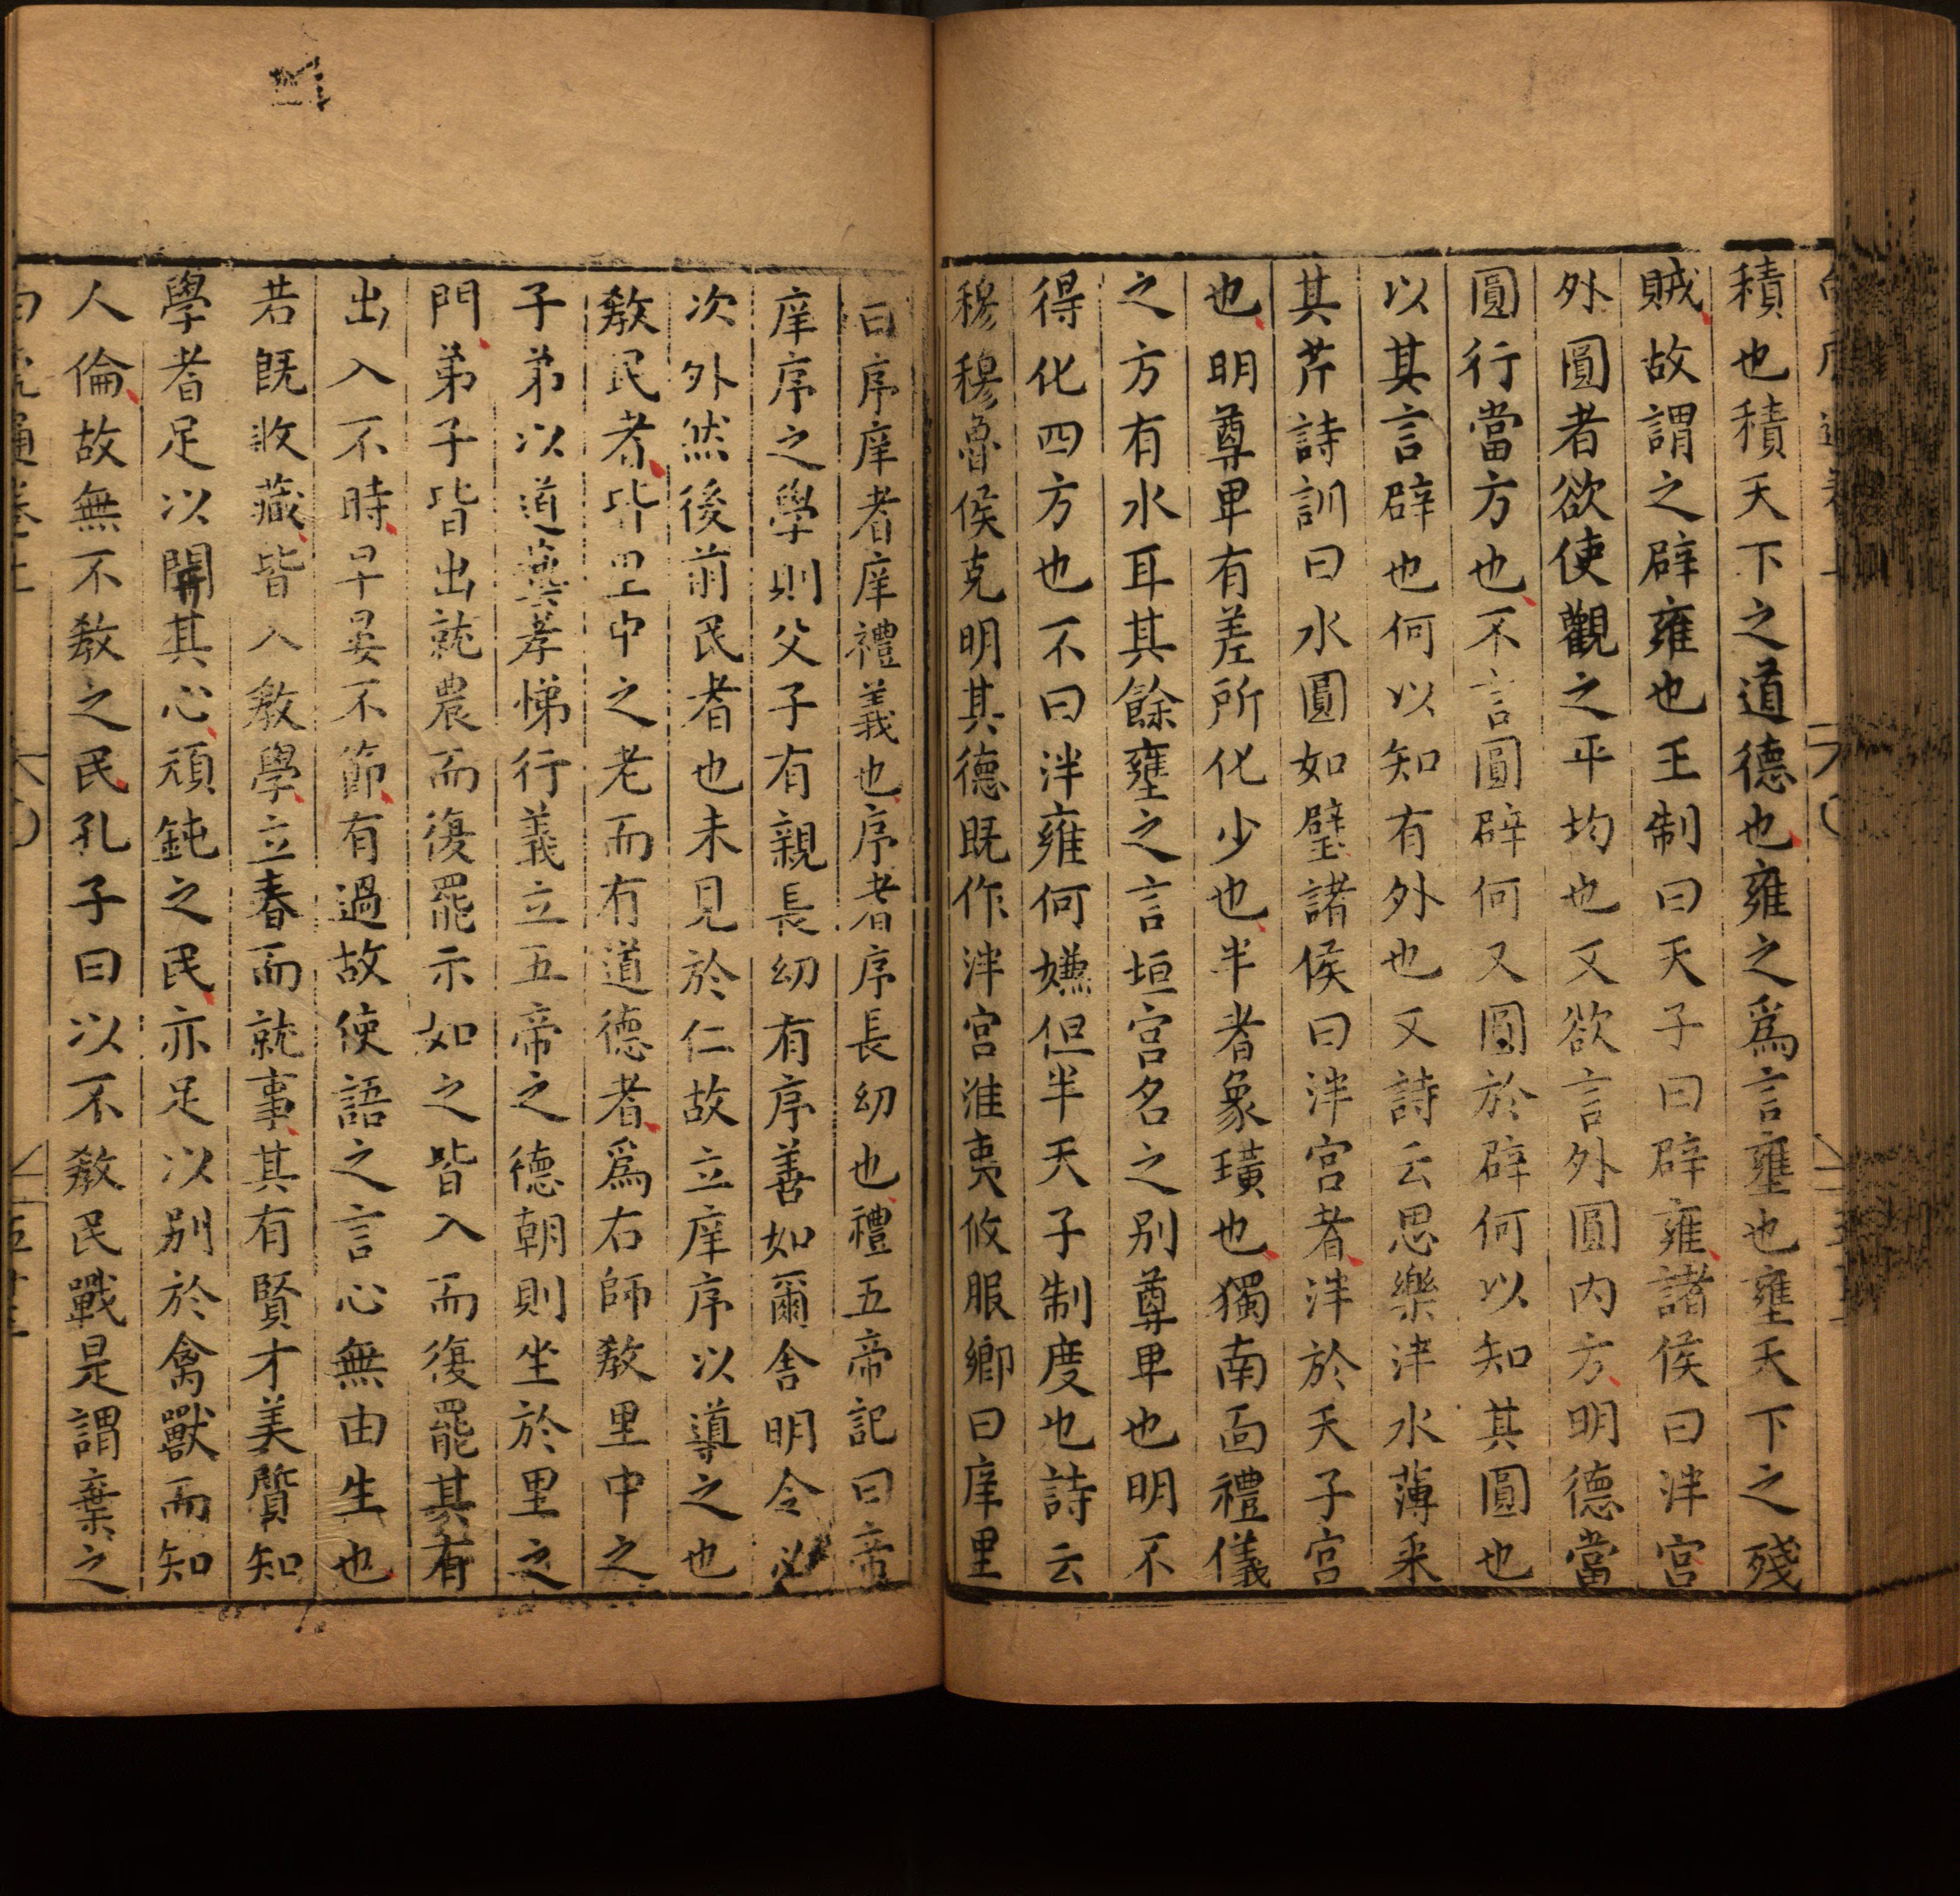 積也積天下之道德也雍之爲言壅也壅天下之殘
賊故謂之辟雍也王制曰天子曰辟雍諸侯曰泮宮
外圓者欲使觀之平均也又欲言外圓内方明德當
圓行當方也不言圓辟何又圓於辟何以知其圓也
以其言辟也何以知有外也又詩云思樂泮水薄采
其芹詩訓曰水圓如璧諸侯曰泮宮者泮於天子宮
也明尊卑有差所化少也半者象璜也獨南面禮儀
之方有水耳其餘壅之言垣宮名之别尊卑也明不
得化四方也不曰泮雍何嫌但半天子制度也詩云
穆穆魯侯克明其德既作泮宮淮夷攸服鄉曰庠里
曰序庠者庠禮義也序者序長幼也禮五帝記曰帝
庠序之學則父子有親長幼有序善如爾舍明令必
次外然後前民者也未見於仁故立庠序以導之也
教民者皆里中之老而有道德者爲右師教里中之
子弟以道藝孝悌行義立五帝之德朝則坐於里之
門弟子皆出就農而復罷示如之皆入而復罷其有
出入不時早晏不節有過故使語之言心無由生也
若既收藏皆入教學立春而就事其有賢才美質知
學者足以開其心頑鈍之民亦足以别於禽獸而知
人倫故無不教之民孔子曰以不教民戰是謂棄之